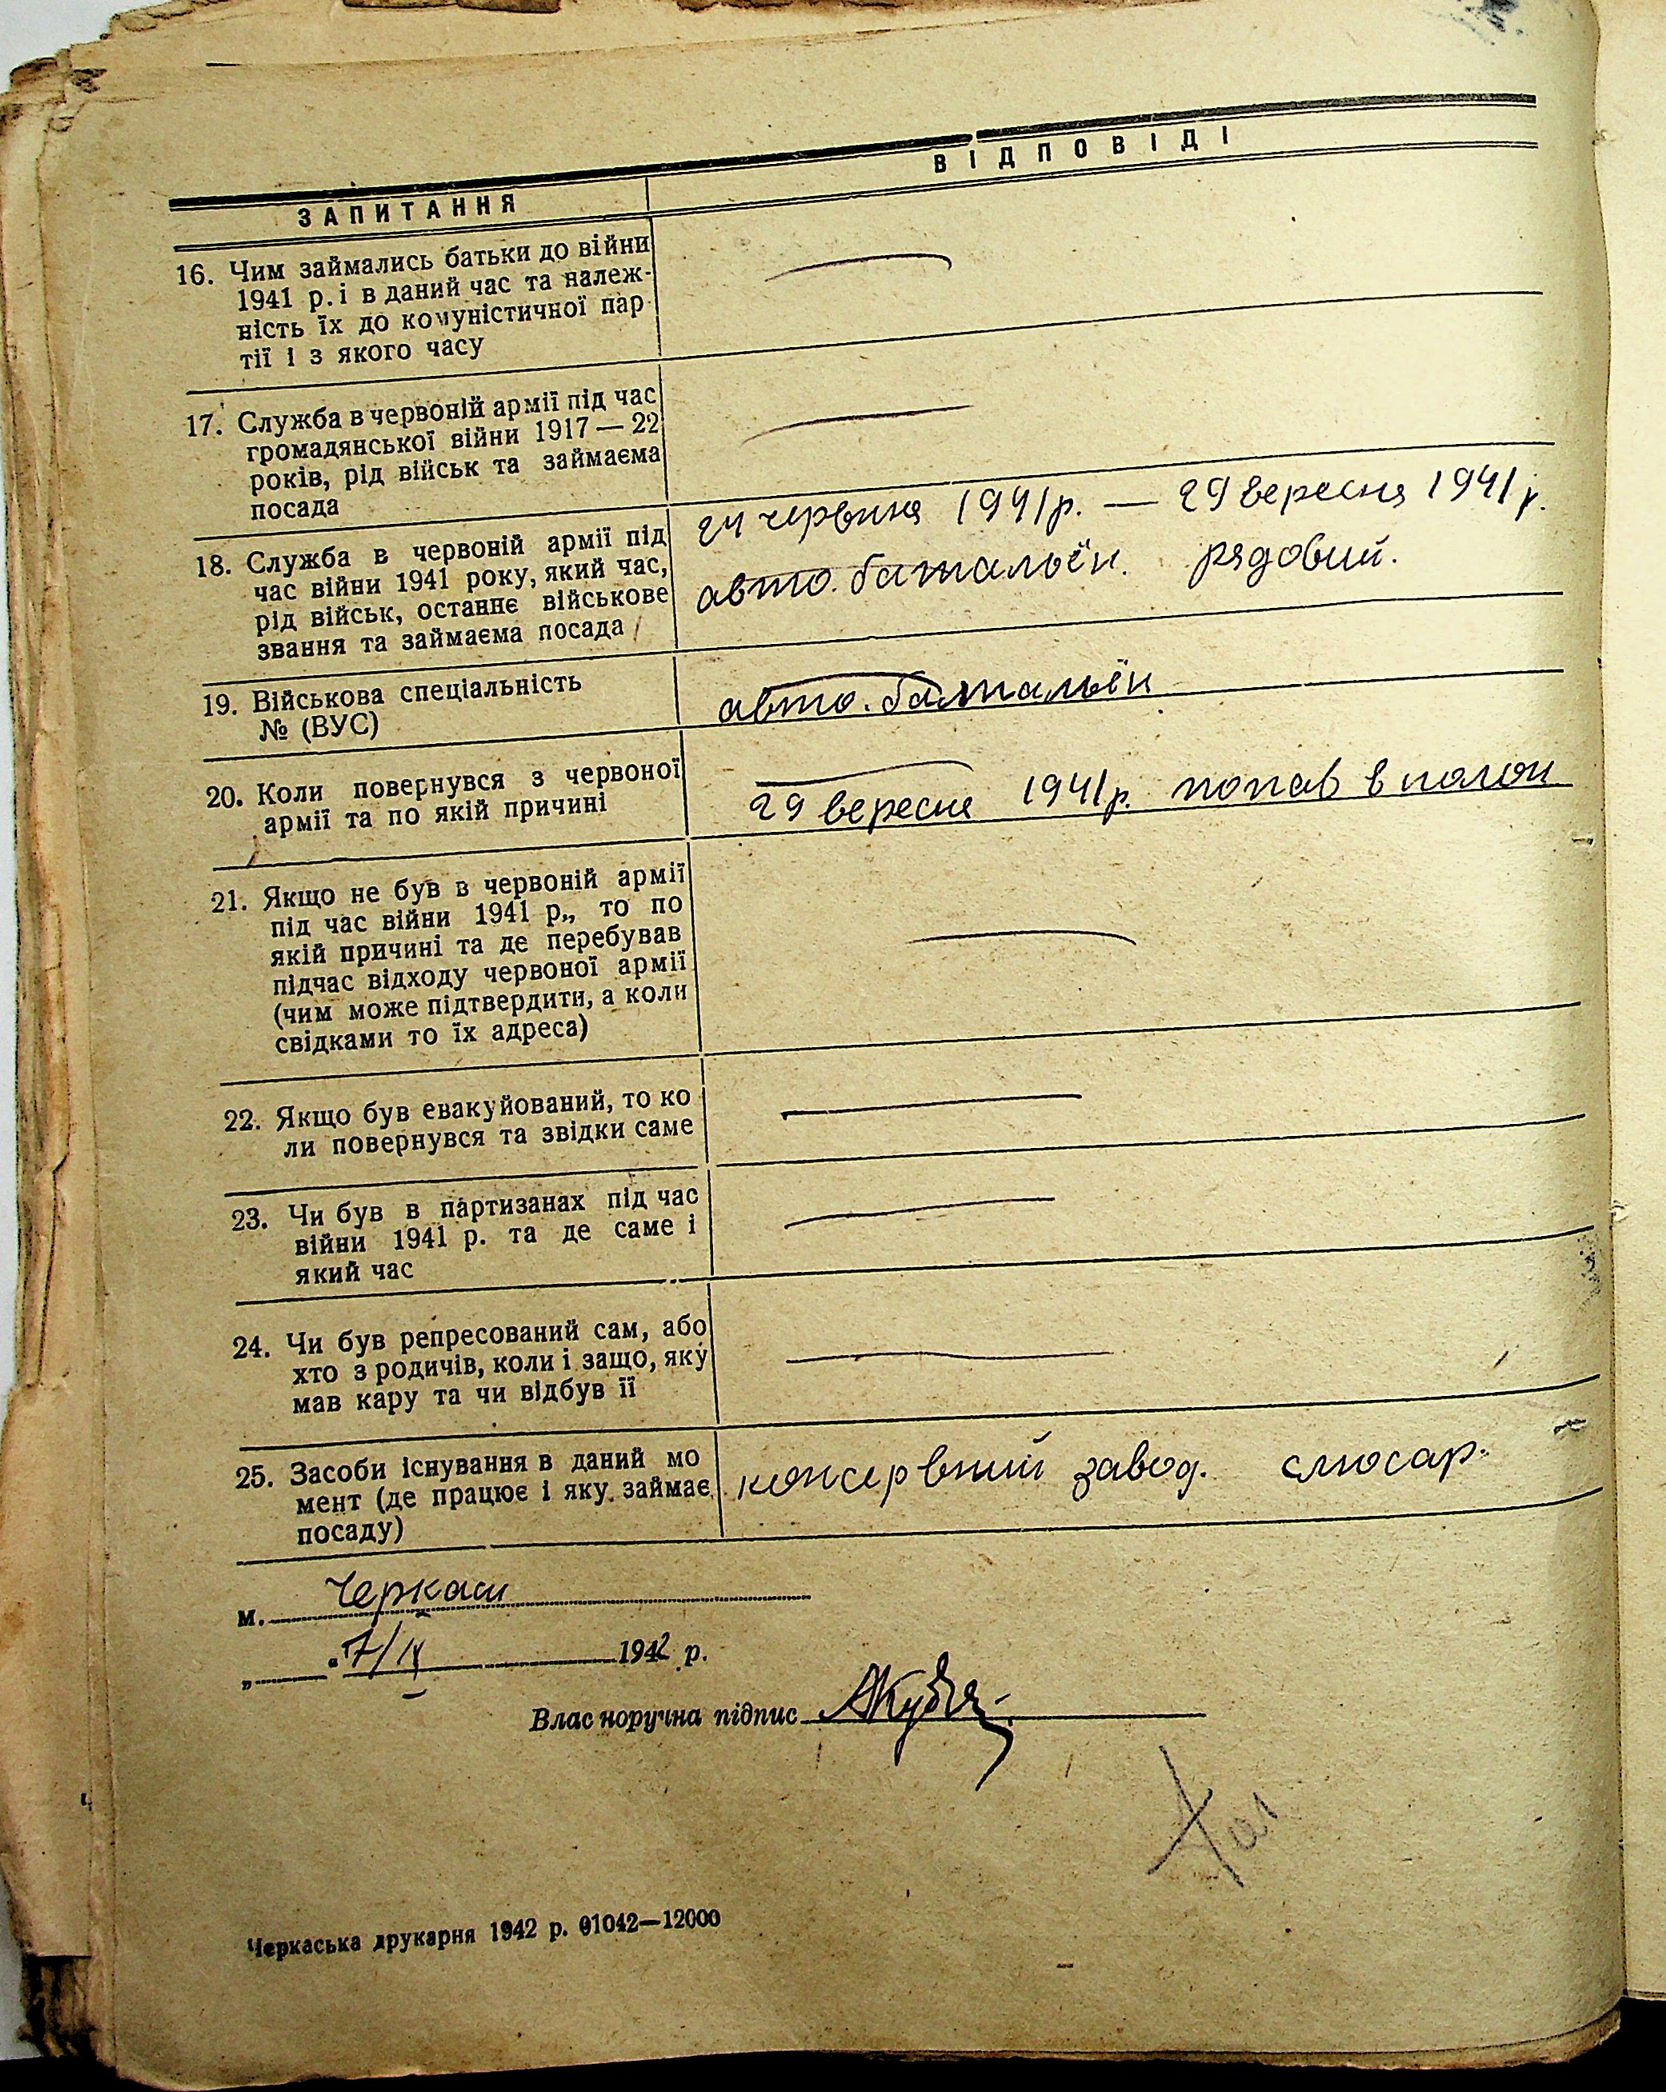 ЗАПИТАННЯ
ВІДПОВІДІ
16. Чим займались батьки до війни
1941 р. і в даний час та належ-
ність їх до комуністичної пар
тії і з якого часу
17. Служба в червоній армії під час
громадянської війни 1917 — 22
років, рід військ та займаєма
посада
18. Служба в червоній армії під
час війни 1941 року, який час,
рід військ, останнє військове
звання та займаєма посада
24 червня 1941 р. — 29 вересня 1941 р.
авто. батальён. рядовий.
19. Військова спеціальність
№ (ВУС)
авто. батальён
20. Коли повернувся з червоної
армії та по якій причині
29 вересня 1941 р. попав в полон
21. Якщо не був в червоній армії
під час війни 1941 р„ то по
якій причині та де перебував
підчас відходу червоної армії
(чим може підтвердити, а коли
свідками то їх адреса)
22. Якщо був евакуйований, то ко
ли повернувся та звідки саме
23. Чи був в партизанах під час
війни 1941 р. та де саме і
який час
24. Чи був репресований сам, або
хто з родичів, коли і защо, яку
мав кару та чи відбув її
25. Засоби існування в даний мо
мент (де працює і яку займає
посаду)
консервний завод. слюсар.
м. Черкаси
„ “ 7/IV 1942 р.
Власноручна підпис
Черкаська друкарня 1942 р. 01042—12000